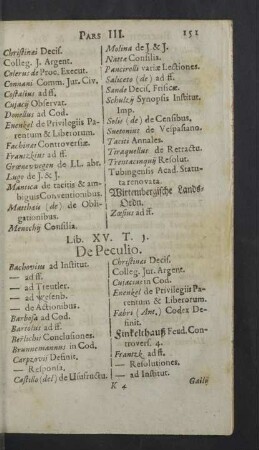 PARS III. 151
Christinæi Decis.
Colleg. J. Argent.
Colerus de Proc. Execut.
Connani Comm. Jur. Civ.
Costalius ad ff.
Cujacij Observat.
Donellus ad Cod.
Enenkel de Privilegiis Parentum & Liberorum.
Fachinæi Controversiæ.
Frantzkius ad ff.
Grœnewegen de LL. abr.
Lugo de J. & J.
Mantica de tacitis & ambiguis Conventionibus.
Matthæu (de) de Obligationibus.
Menochij Consilia.
Molina de J. & J.
Natta Consilia.
Pancirolli variæ Lectiones.
Saliceto (de) ad ff.
Sande Decis. Frisicæ.
Schultzij Synopsis Institut. Imp.
Solis (de) de Censibus.
Suetonius de Vespasiano.
Taciti Annales.
Tiraquellus de Retractu.
Trentacinquij Resolut.
Tubingensis Acad. Statuta renovata.
Würtenbergische Lands-Ordn.
Zæsius ad ff.
Lib. XV. T. 1.
De Peculio.
Bachovius ad Institut.
— ad ff.
— ad Treutler.
— ad Wesenb.
— de Actionibus.
Barbosa ad Cod.
Bartolus ad ff.
Berlichii Conclusiones.
Brunnemannus in Cod.
Carpzovii Definit.
— Responsa.
Castillo (del) de Usufructu.
Christinæi Decis.
Colleg. Jur. Argent.
Cujacius in Cod.
Enenkel de Privilegiis Parentum & Liberorum.
Fabri (Ant.) Codex Definit.
Finkelthauß Feud. Controvers. 4.
Frantzk. ad ff.
— Resolutiones.
— ad Institut.
K 4
Gailij